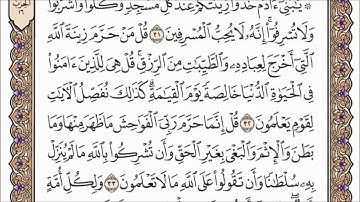 ۞ يَٰبَنِىٓ ءَادَمَ خُذُوا۟ زِينَتَكُمْ عِندَ كُلِّ مَسْجِدٍ وَكُلُوا۟ وَٱشْرَبُوا۟
وَلَا تُسْرِفُوٓا۟ ۚ إِنَّهُۥ لَا يُحِبُّ ٱلْمُسْرِفِينَ ٣١ قُلْ مَنْ حَرَّمَ زِينَةَ ٱللَّهِ
ٱلَّتِىٓ أَخْرَجَ لِعِبَادِهِۦ وَٱلطَّيِّبَٰتِ مِنَ ٱلرِّزْقِ ۚ قُلْ هِىَ لِلَّذِينَ ءَامَنُوا۟
فِى ٱلْحَيَوٰةِ ٱلدُّنْيَا خَالِصَةً يَوْمَ ٱلْقِيَٰمَةِ ۗ كَذَٰلِكَ نُفَصِّلُ ٱلْءَايَٰتِ
لِقَوْمٍ يَعْلَمُونَ ٣٢ قُلْ إِنَّمَا حَرَّمَ رَبِّىَ ٱلْفَوَٰحِشَ مَا ظَهَرَ مِنْهَا وَمَا
بَطَنَ وَٱلْإِثْمَ وَٱلْبَغْىَ بِغَيْرِ ٱلْحَقِّ وَأَن تُشْرِكُوا۟ بِٱللَّهِ مَا لَمْ يُنَزِّلْ
بِهِۦ سُلْطَٰنًا وَأَن تَقُولُوا۟ عَلَى ٱللَّهِ مَا لَا تَعْلَمُونَ ٣٣ وَلِكُلِّ أُمَّةٍ